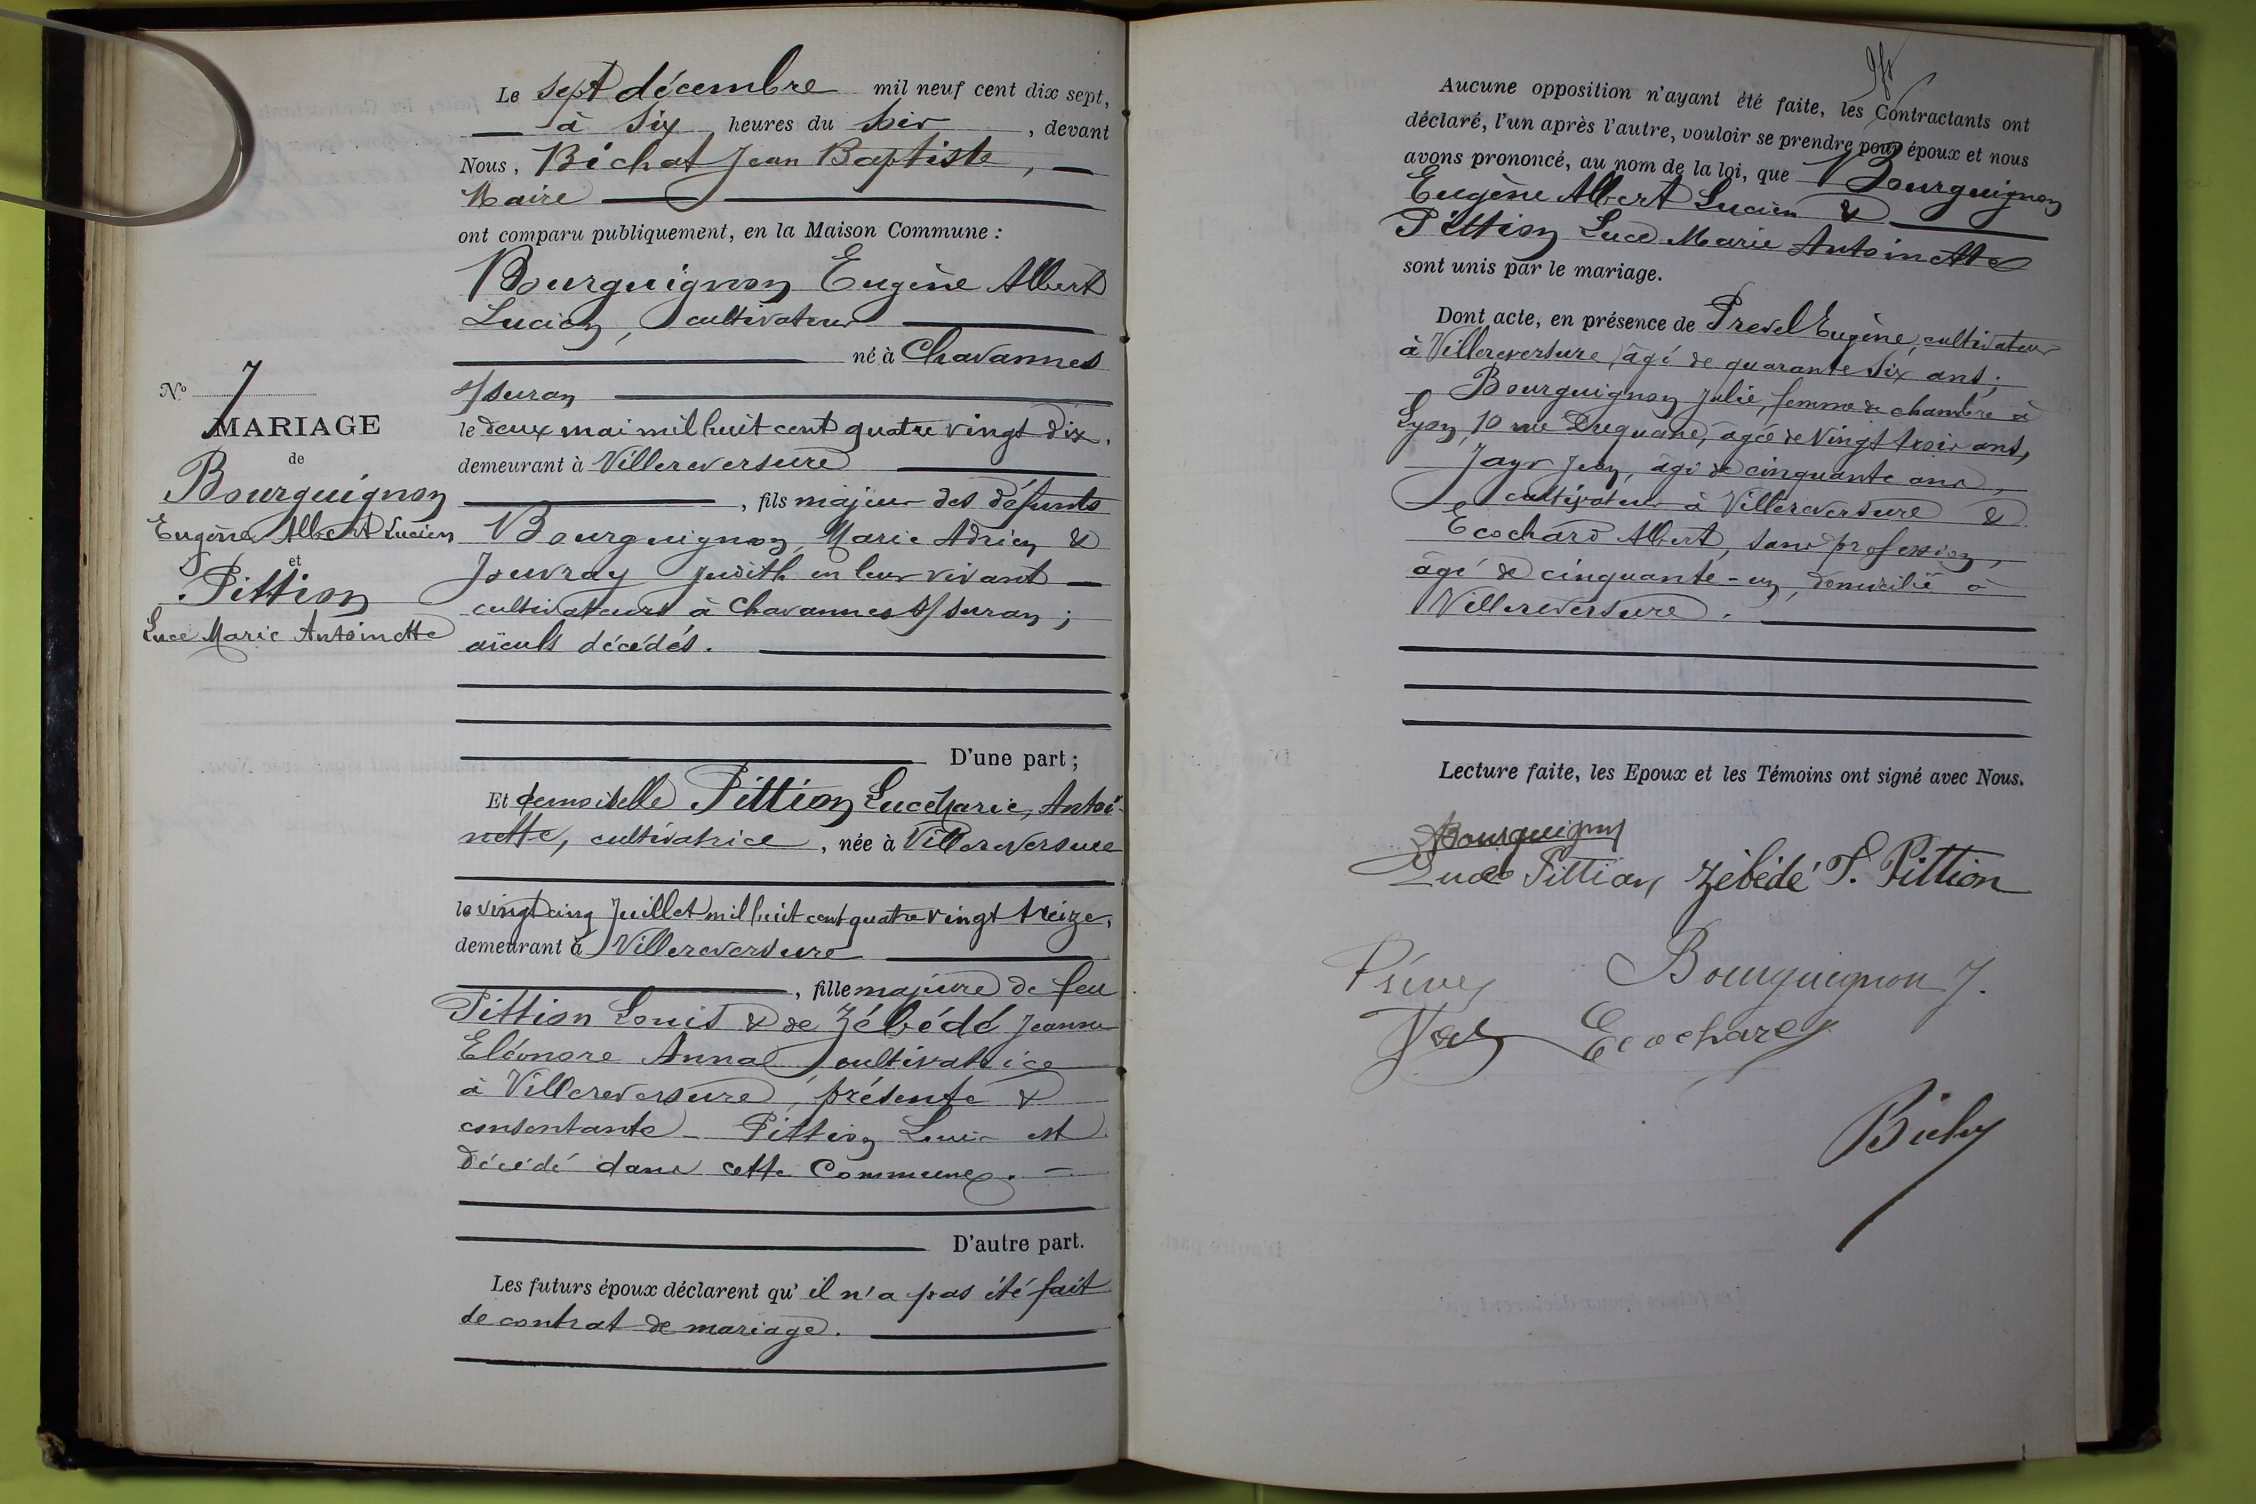 Le sept décembre mil neuf cent dix sept,
à six heures du soir, devant
Nous, Bichat Jean Baptiste,
Maire
ont comparu publiquement, en la Maison Commune :
Bourguignon Eugène Albert
Lucien, cultivateur
né à Chavannes
s/ suran
le deux mai mil huit cent quatre vingt dix,
demeurant à Villereversure
, fils majeur des défunts
Bourguignon Marie Adrien &
Jouvray Judith en leur vivant
cultivateurs à Chavannes s/ suran ;
aïeuls décédés.
D'une part ;
Et demoiselle Pittion Luce Marie, Antoi-
nette, cultivatrice, née à Villereversure
le vingt cinq Juillet mil huit cent quatre vingt treize,
demeurant à Villereversure
, fille majeure de feu
Pittion Louis & de Zébédé Jeanne
Eléonore Anna cultivatrice
à Villereversure, présente &
consentante - Pittion Louis est
décédé dans cette Commune. -
D'autre part.
Les futurs époux déclarent qu'il n'a pas été fait
de contrat de mariage.
No 7
MARIAGE
de
Bourguignon
Eugène Albert Lucien
et
Pittion
Luce Marie Antoinette
Aucune opposition n'ayant été faite, les Contractants ont
déclaré, l'un après l'autre, vouloir se prendre pour époux et nous
avons prononcé, au nom de la loi, que Bourguignon
Eugène Albert Lucien &
Pittion Luce Marie Antoinette
sont unis par le mariage.
Dont acte, en présence de Prevel Eugène, cultivateur
à Villereversure, âgé de quarante six ans ;
Bourguignon Julie, femme de chambre à
Lyon, 10 rue Duquaire, âgée de vingt trois ans,
Jayr Jean, âgé de cinquante ans,
cultivateur à Villereversure &
Ecochard Albert, sans profession,
âgé de cinquante-un, domicilié à
Villereversure.
Lecture faite, les Epoux et les Témoins ont signé avec Nous.
Bourguignon
Luce Pittion Zébédé F. Pittion
Bourguignon J.
Ecochard